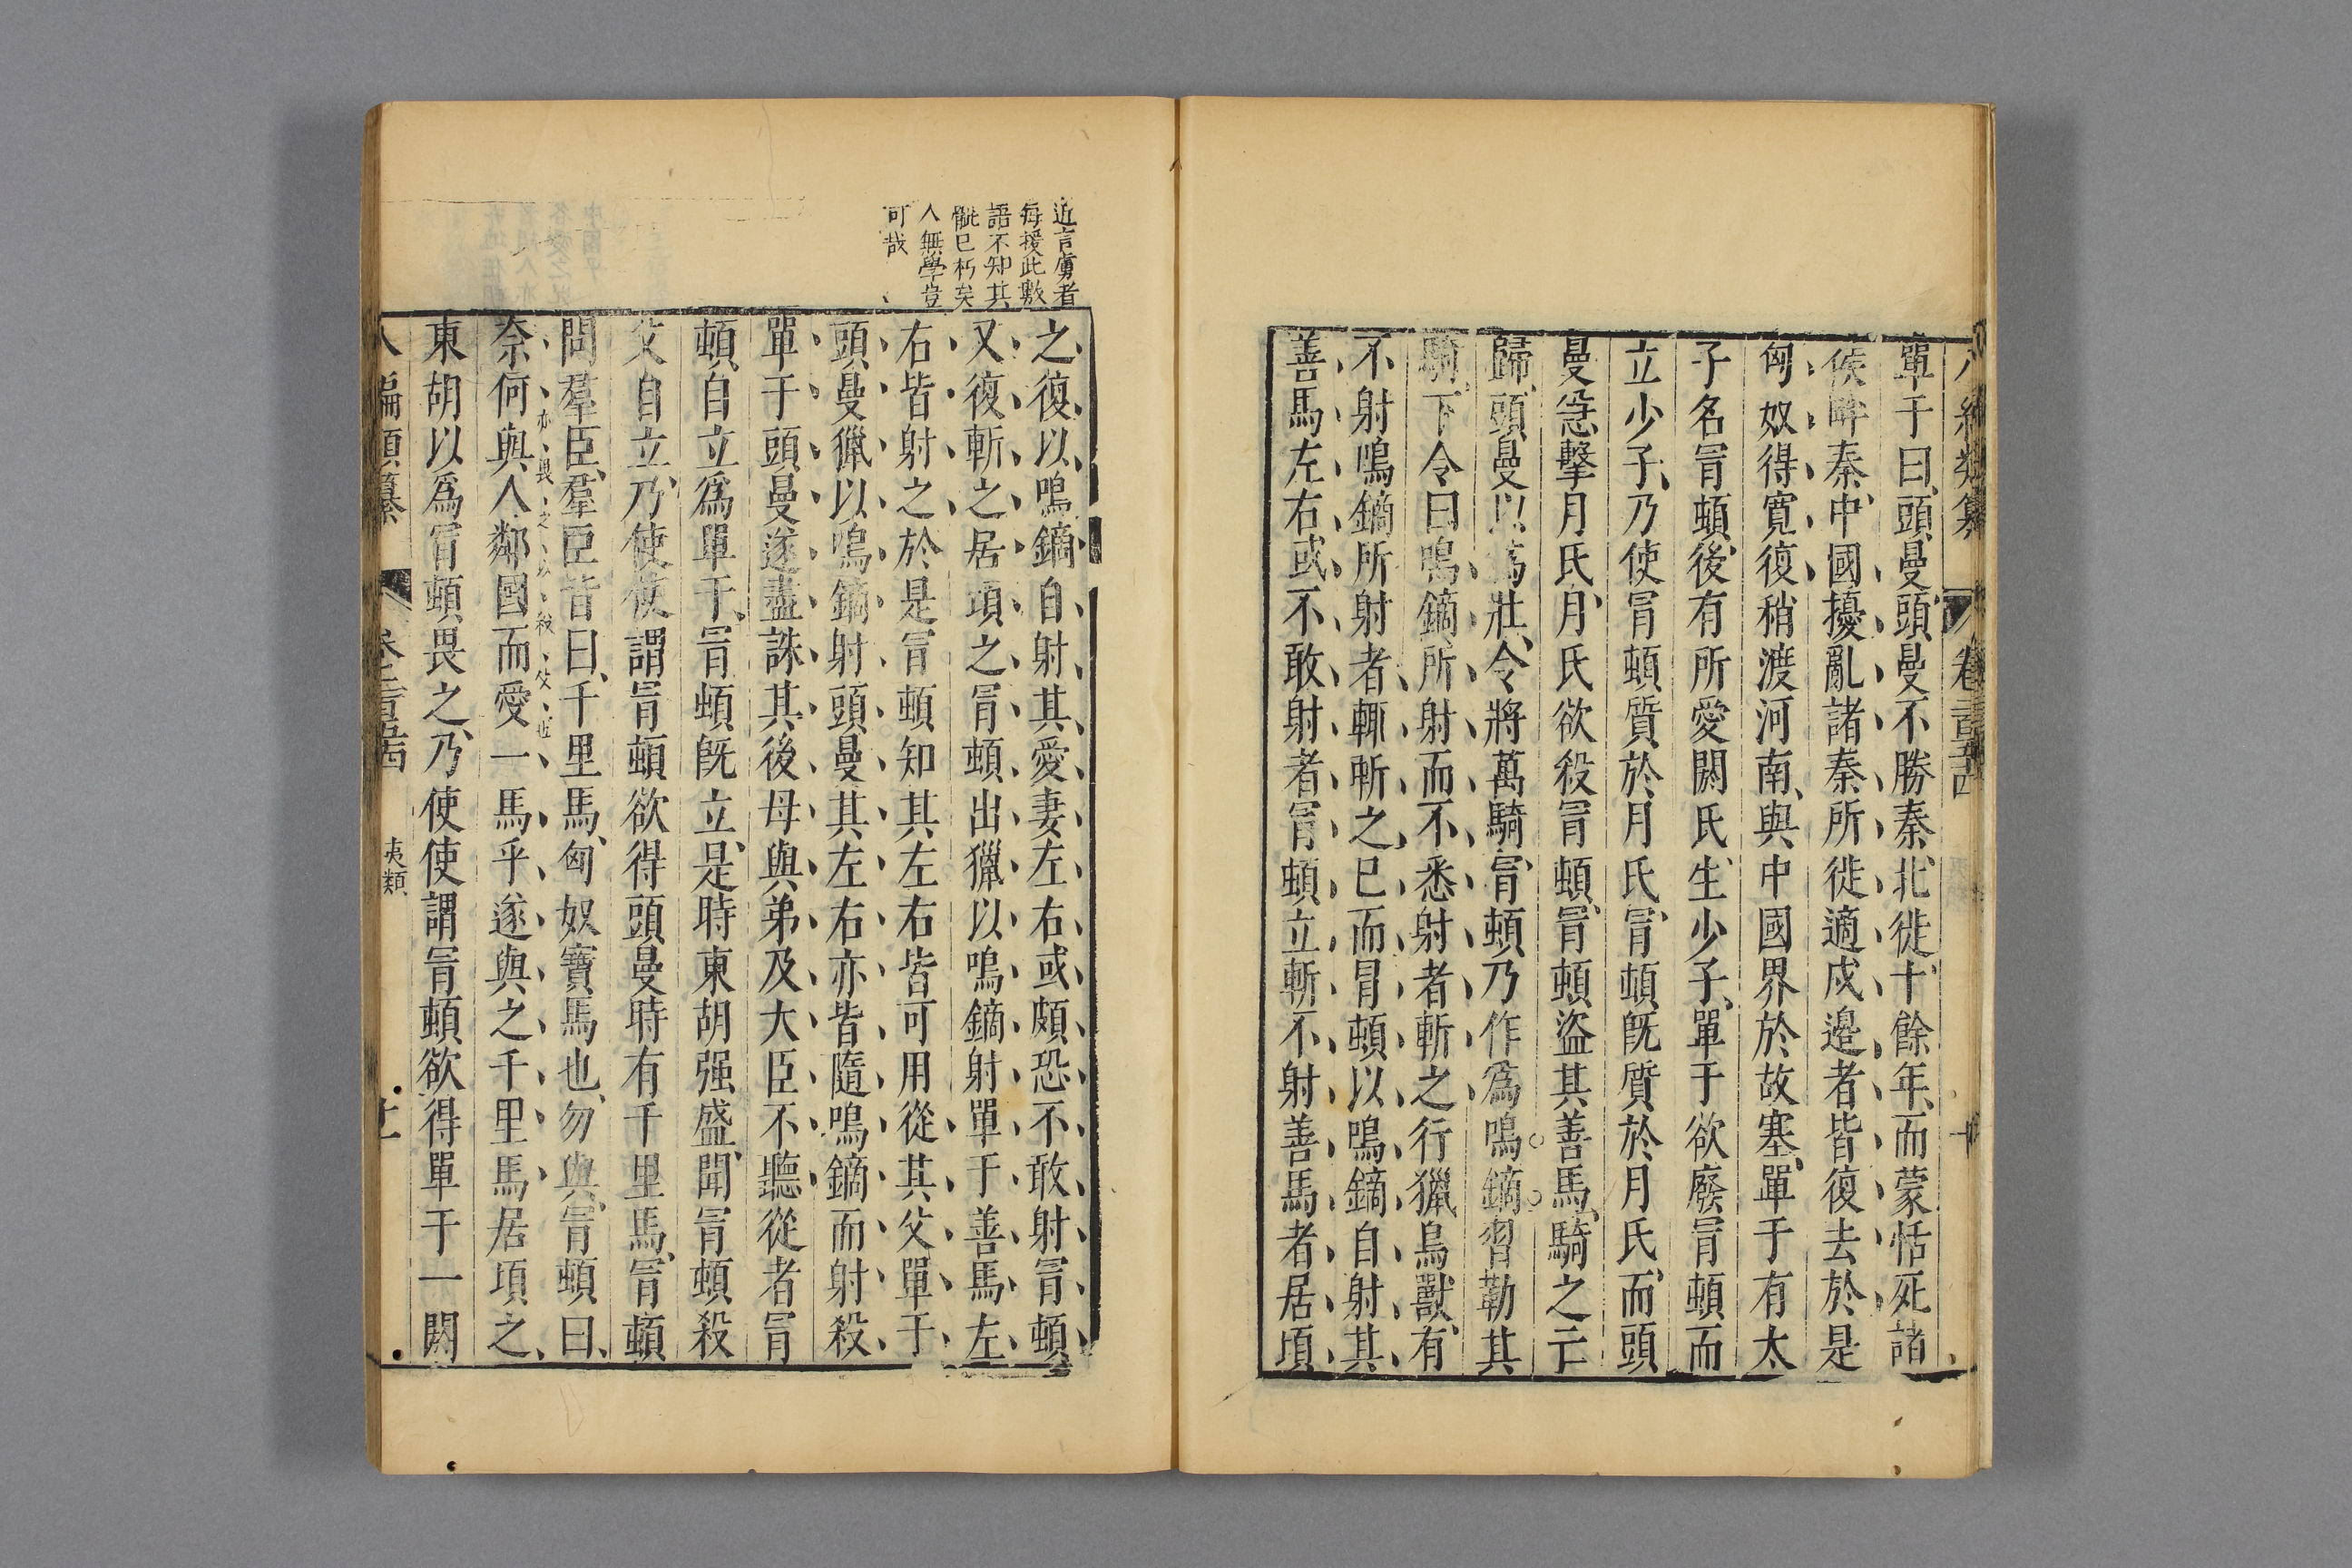 八編類纂 卷二百五十四 十
單于曰頭曼頭曼不勝秦北徙十餘年而蒙恬死諸
侯畔秦中國擾亂諸秦所徙適戍邊者皆復去於是
匈奴得寬復稍渡河南與中國界於故塞單于有太
子名冐頓後有所愛閼氏生少子單于欲廢冐頓而
立少子乃使冐頓質於月氏冐頓旣質於月氏而頭
曼急擊月氏月氏欲殺冐頓冐頓盜其善馬騎之亡
歸頭曼以爲壯令將萬騎冐頓乃作爲鳴鏑習勒其
騎下令曰鳴鏑所射而不悉射者斬之行獵鳥獸有
不射鳴鏑所射者輙斬之已而冐頓以鳴鏑自射其
善馬左右或不敢射者冐頓立斬不射善馬者居頃
近言虜者
每援此數
語不知其
骴已朽矣
人無學豈
可哉
之復以鳴鏑自射其愛妻左右或頗恐不敢射冐頓
又復斬之居頃之冐頓出獵以鳴鏑射單于善馬左
右皆射之於是冐頓知其左右皆可用從其父單于
頭曼獵以鳴鏑射頭曼其左右亦皆隨鳴鏑而射殺
單于頭曼遂盡誅其後母與弟及大臣不聽從者冐
頓自立爲單于冐頓旣立是時東胡强盛聞冐頓殺
父自立乃使使謂冐頓欲得頭曼時有千里馬冐頓
問羣臣羣臣皆曰千里馬匈奴寶馬也勿與冐頓曰
亦畏之以殺父也
柰何與人鄰國而愛一馬乎遂與之千里馬居項之
東胡以爲冐頓畏之乃使使謂冐頓欲得單于一閼
八編類纂 卷二百五十四 夷類 十一